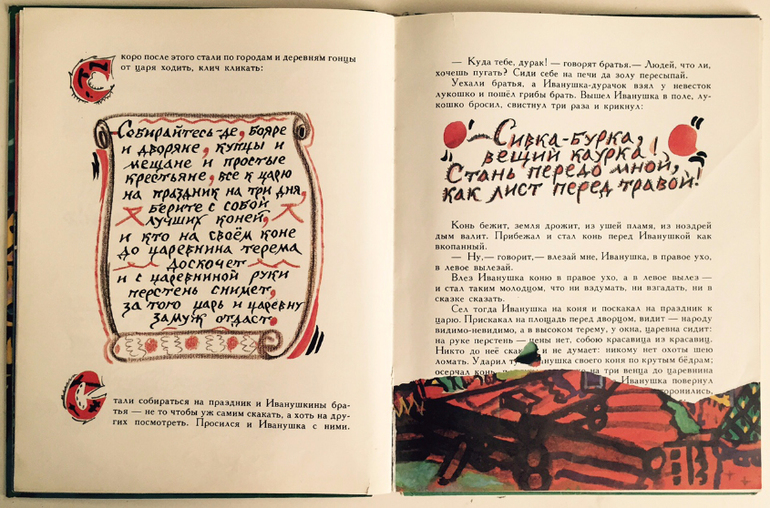 Скоро после этого стали по городам и деревням гонцы
от царя ходить, клич кликать:
Собирайтесь-де, бояре
и дворяне, купцы и
мещане и простые
крестьяне, все к царю
на праздник на три дня,
берите с собой
лучших коней,
и кто на своём коне
до царевнина терема
доскочет
и с царевниной руки
перстень снимет,
за того царь и царевну
замуж отдаст.
Стали собираться на праздник и Иванушкины бра-
тья — не то чтобы уж самим скакать, а хоть на дру-
гих посмотреть. Просился и Иванушка с ними.
— Куда тебе, дурак! — говорят братья. — Людей, что ли,
хочешь пугать? Сиди себе на печи да золу пересыпай.
Уехали братья, а Иванушка-дурачок взял у невесток
лукошко и пошёл грибы брать. Вышел Иванушка в поле, лу-
кошко бросил, свистнул три раза и крикнул:
— Сивка-бурка,
вещий каурка!
Стань передо мной,
как лист перед травой!
Конь бежит, земля дрожит, из ушей пламя, из ноздрей
дым валит. Прибежал и стал конь перед Иванушкой как
вкопанный.
— Ну, — говорит, — влезай мне, Иванушка, в правое ухо,
в левое вылезай.
Влез Иванушка коню в правое ухо, а в левое вылез —
и стал таким молодцом, что ни вздумать, ни взгадать, ни в
сказке сказать.
Сел тогда Иванушка на коня и поскакал на праздник к
царю. Прискакал на площадь перед дворцом, видит — народу
видимо-невидимо, а в высоком терему, у окна, царевна сидит:
на руке перстень — цены нет, собою красавица из красавиц.
Никто до неё и не думает: никому нет охоты шею
ломать. Ударил своего коня по крутым бёдрам;
осерчал на три венца до царевнина
Иванушка повернул